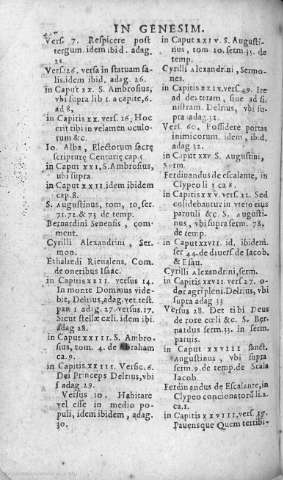 IN GENESIM.
Vers 7. Respicere post
tergum. idem ibid. adag.
25.
Vers 26. versa in statuam sa-
lis. idem ibid. adag. 26.
in Caput XX. S. Ambrosius,
vbi supra lib 1. a capite, 6.
ad 8,
in Capitis XX. vers 16, Hoc
erit tibi in velamen oculo-
rum &c.
Io. Alba, Electorum sacræ
scripturæ Centuriæ cap. 1
in Caput XXI, S. Ambrosius,
vbi supra.
in Caput XXII idem ibidem
cap. 8.
S. Augustinus, tom, 10, ser.
71. 72. & 73 de temp.
Bernardini Senensis, com-
ment.
Cyrilli Alexandrini, Ser-
mon.
Ethalredi Rieualens, Com.
de oneribus Isaac.
in Capitis XXII. versus 14.
In monte Dominus vide-
bit, Delrius, adag. vet. test.
par 1 adig. 27. versus 17.
Sicut stellæ cæli. idem ibi.
adag 28.
in Caput XXIII. S. Ambro-
sius, tom. 4. de Abraham
ca. 9.
in Capitis XXIII. Versic. 6.
Dei Princeps Delrius, vbi
s adag 29.
Versus 10. Habitare
vel esse in medio po-
puli, idem ibidem, adag.
30.
in Caput XXIV. S. Augusti-
nius, tom 10. serm. 35. de
temp.
Cyrilli Alexandrini, Sermo-
nes.
in Capitis XXIV. vers 49. Ire
ad dexteram, siue ad si-
nistram. Delrius, vbi su-
pra adag 31.
Vers 60, Possidere portas
inimicorum. idem, ibid.
adag 32.
in Caput XXV S. Augustini,
Serm.
Ferdinandus de escalante, in
Clypeo li 3 ca 8.
in Capitis XXV. vers 22. Sed
collidebantur in vtero eius
paruuli &c. S. Augusti-
nus, vbi supra serm. 78,
de temp.
in Caput XXVII. id. ibidem.
ser 44. de diuers de Iacob,
& Esau.
Cyrilli Alexandrini, serm.
in Capitis XXVII vers 27. o-
dor agri pleni. Delrius, vbi
supra adag 33
Versus 28. Det tibi Deus
de rore cœli &c. S. Ber-
nardus serm. 33. in serm.
paruis.
in Caput XXVIII sanct.
Augustinus, vbi supra
serm. 9 de temp. de Scala
Iacob.
Ferdinandus de Escalante, in
Clypeo concionatorũ li. 2.
ca. 1.
in Capitis XXVIII, vers 17.
Pauensque Quem terribi-